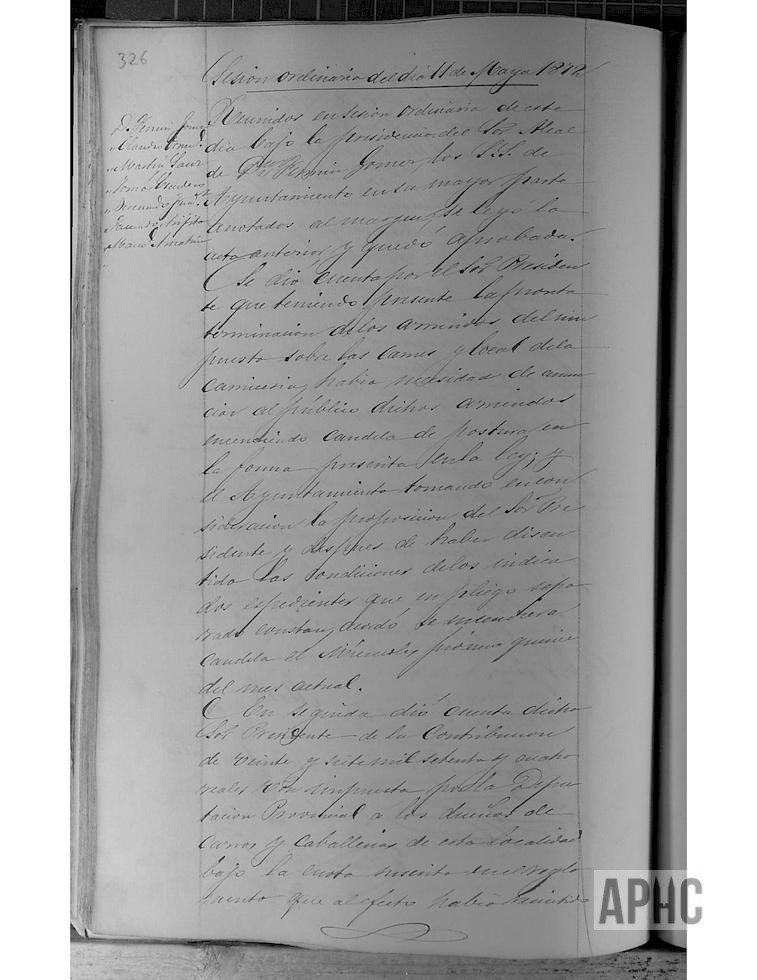 326
Sesion ordinaria del dia 11 de Mayo 1872
D. Fermin Gomez
" Claudio
" Martin Sanz
" Tomas
" Facundo
" Mario
Reunidos en sesion ordinaria de este
dia bajo la presidencia del Sor Alcal
de Dn Fermin Gomez los S.S. de
Ayuntamiento en su mayor parte
anotados al margen, se leyó la
acta anterior y quedó aprobada.
Se dio cuenta por el Sor Presiden
te que teniendo presente la pronta
terminacion de los arriendos del im
puesto sobre las carnes y local de la
carniceria, habia necesidad de anun
ciar al público dichos arriendos
encendiendo candela de postura en
la forma prescrita en la ley; y
el Ayuntamiento tomando en con
sideracion la proposicion del Sor Pre
sidente y despues de haber discu
tido las condiciones de los indica
dos espedientes que en pliego sepa
rado constan, acordó se encendiera
candela el Miercoles proximo quince
del mes actual.
En seguida dió cuenta dicho
Sor Presidente de la Contribucion
de veinte y siete mil setenta y cuatro
reales impuesta por la Dipu
tacion Provincial a los dueños de
carros y caballerias de esta localidad
bajo la cuota inscrita en el regla
mento que al efecto habia remitido
APHC